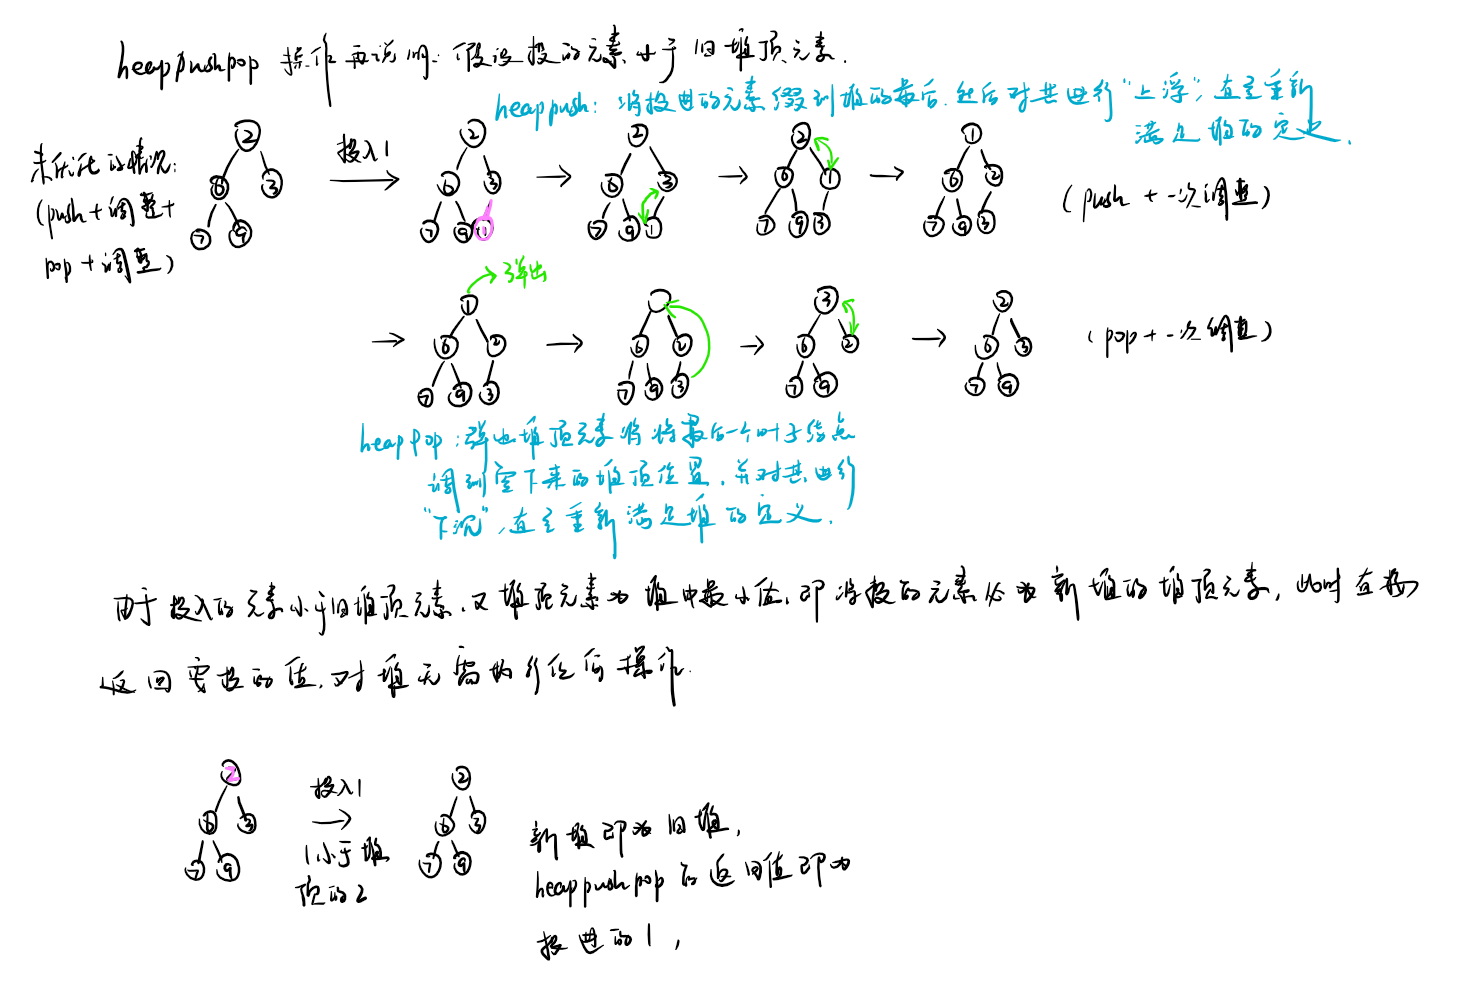 heappushpop 操作再说明: 假设投的元素小于旧堆顶元素.
heappush: 将投进的元素缀到堆的最后. 然后对其进行“上浮”, 直至重新
满足堆的定义.
未优化的情况:
(push+调整+
pop+调整)
2
8 3
7 9
投入1
2
6 3
7 9 1
2
6 3
7 9 1
2
6 1
7 9 3
1
6 2
7 9 3
(push + 一次调整)
弹出
1
6 2
7 9 3
6 2
7 9 3
3
6 2
7 9
2
6 3
7 9
(pop + 一次调整)
heappop: 弹出堆顶元素将将最后一个叶子结点
调到空下来的堆顶位置, 并对其进行
“下沉”, 直至重新满足堆的定义.
由于投入的元素小于旧堆顶元素. 又堆顶元素为堆中最小值, 即将投的元素必为新堆的堆顶元素, 此时直接
返回要投的值. 对堆无需执行任何操作.
2
6 3
7 9
投入1
1小于堆
顶的2
2
6 3
7 9
新堆即为旧堆,
heappushpop的返回值即为
投进的1,